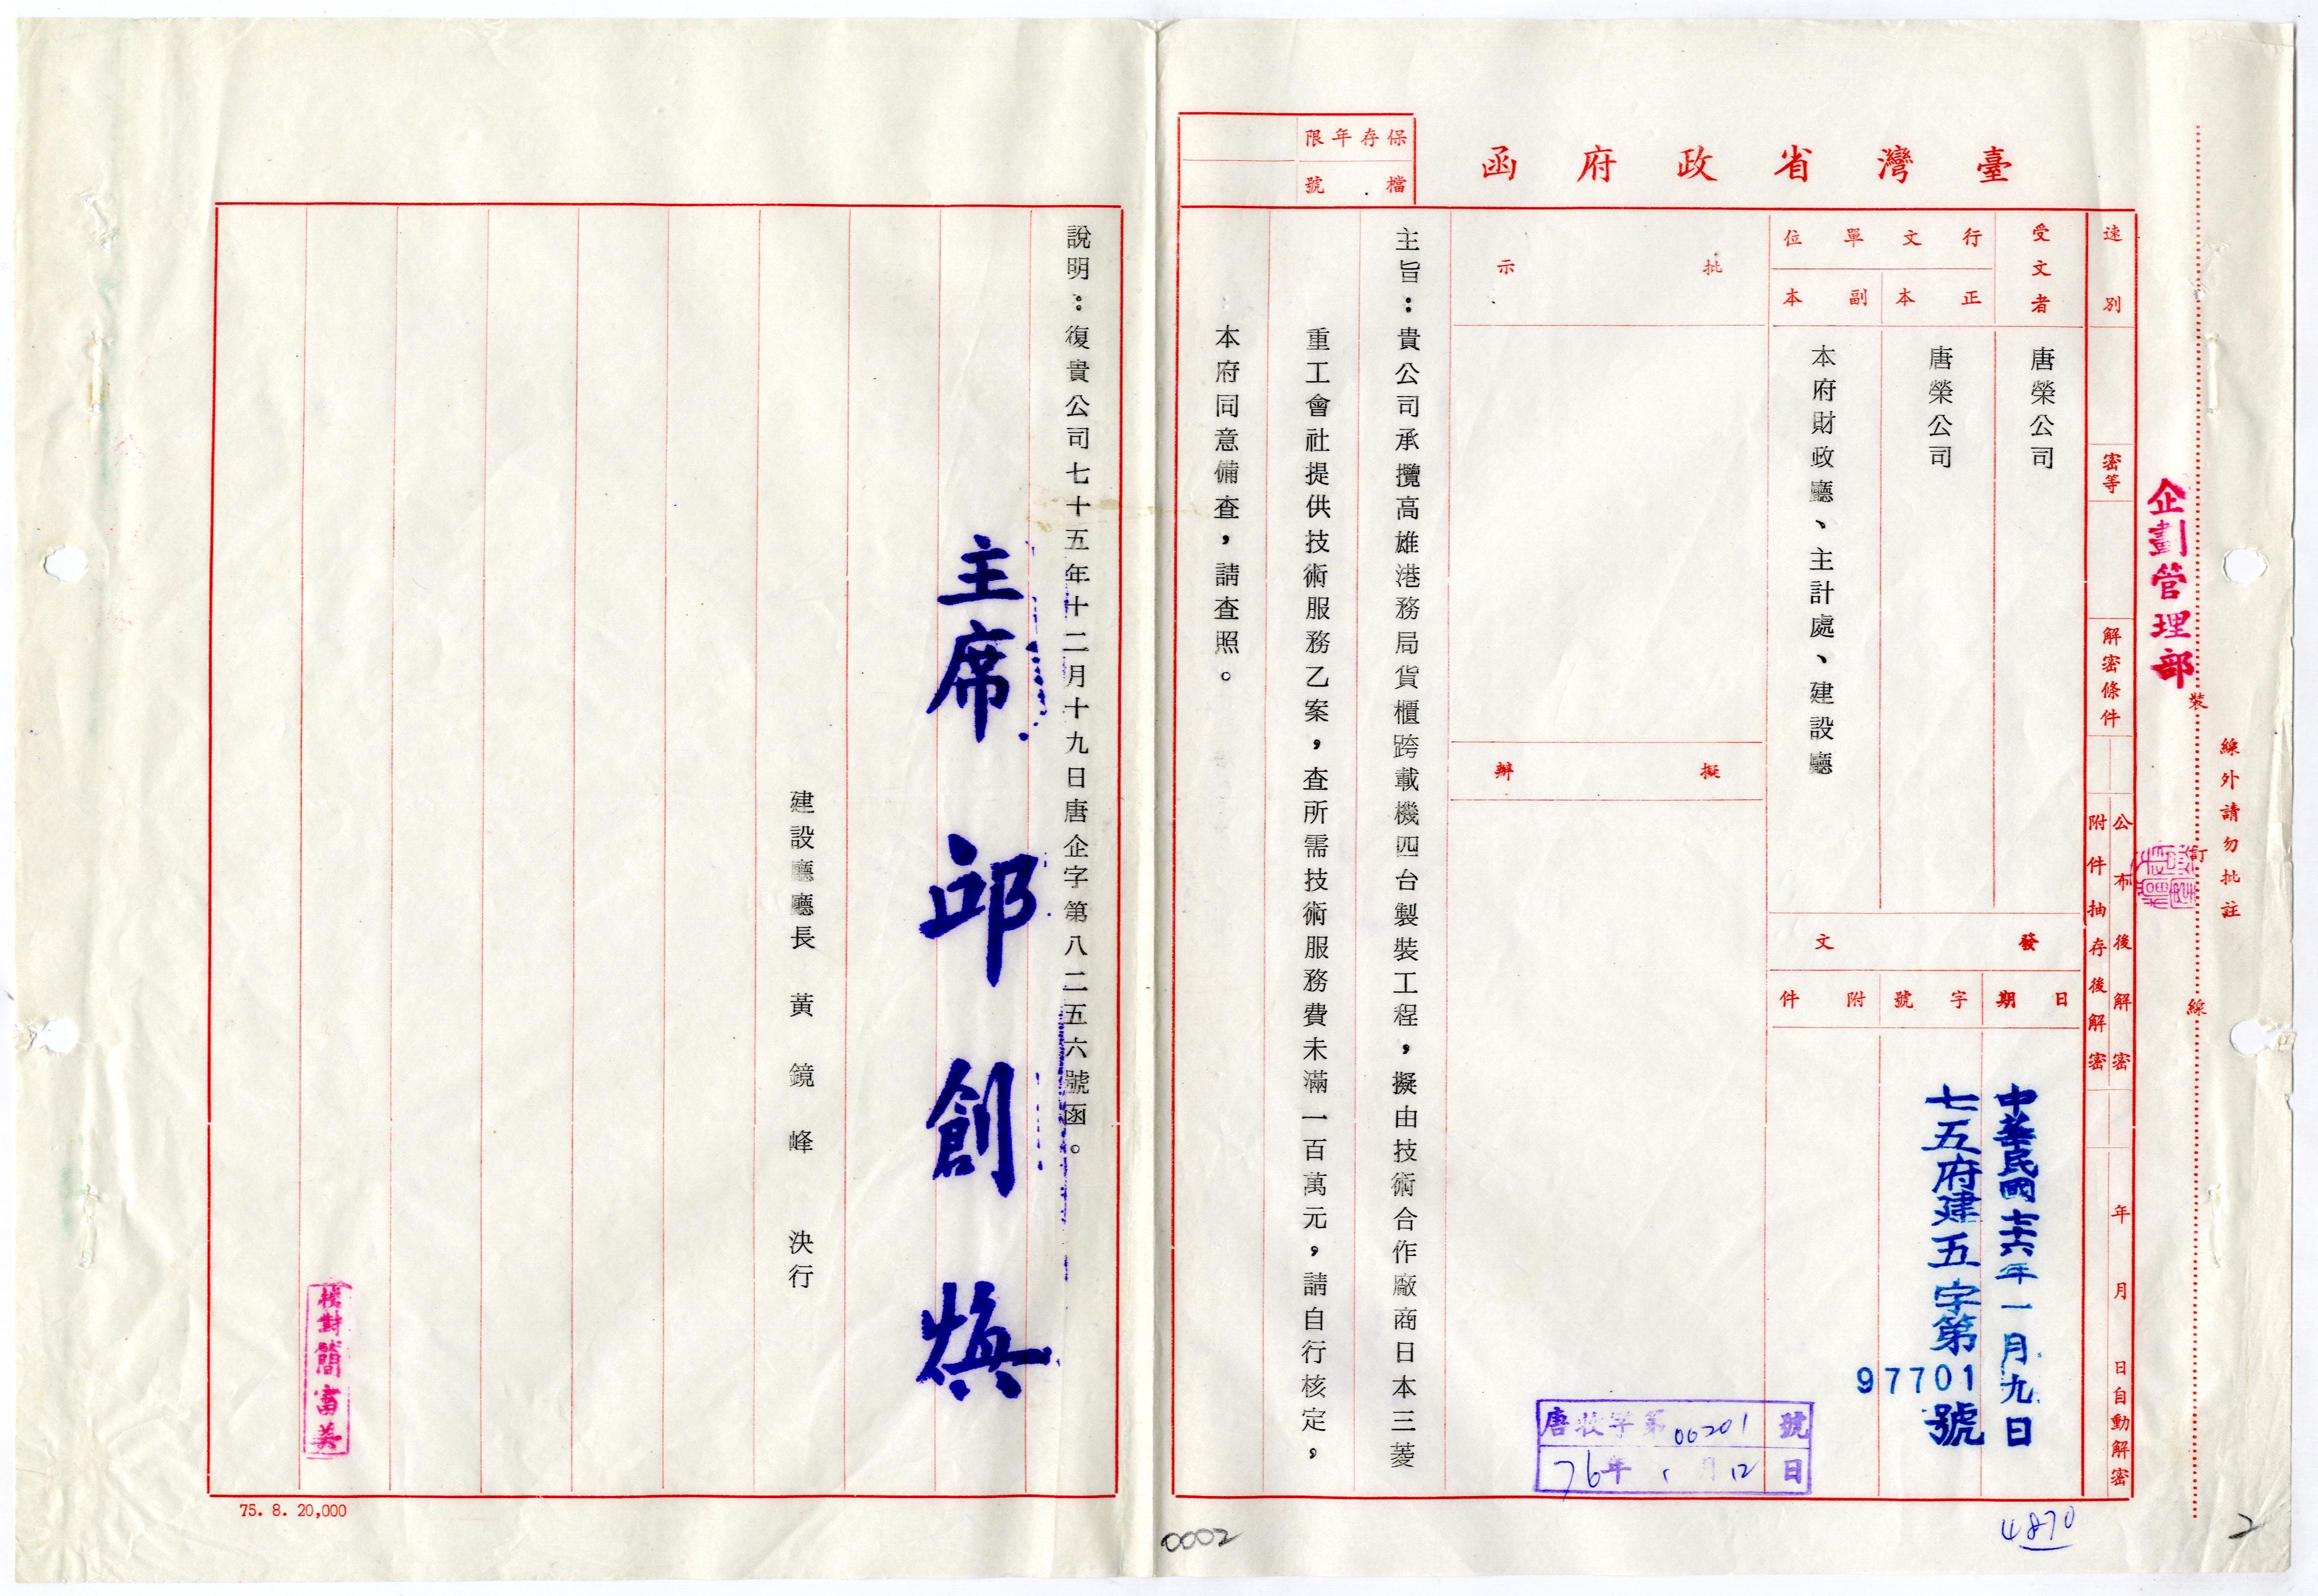 臺灣省政府函
保存年限
檔號
速別
密等
解密條件
公布後解密
附件抽存後解密
年月日自動解密
受文者
唐榮公司
行文單位
正本
唐榮公司
副本
本府財政廳、主計處、建設廳
發文
日期
中華民國七十六年一月九日
字號
七五府建五字第97701號
附件
批示
擬辦
唐收字第00201號
76年1月12日
主旨：貴公司承攬高雄港務局貨櫃跨載機四台製裝工程，擬由技術合作廠商日本三菱
重工會社提供技術服務乙案，查所需技術服務費未滿一百萬元，請自行核定，
本府同意備查，請查照。
說明：復貴公司七十五年十二月十九日唐企字第八二五六號函。
主席 邱創煥
建設廳廳長 黃鏡峰 決行
校對簡富美
75. 8. 20,000
企劃管理部
裝訂線
線外請勿批註
0002
4870
2